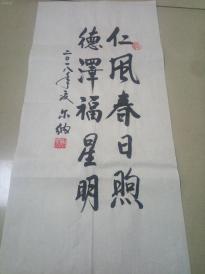 仁風春日煦
德澤福星明
二〇一八年夏 尔纳